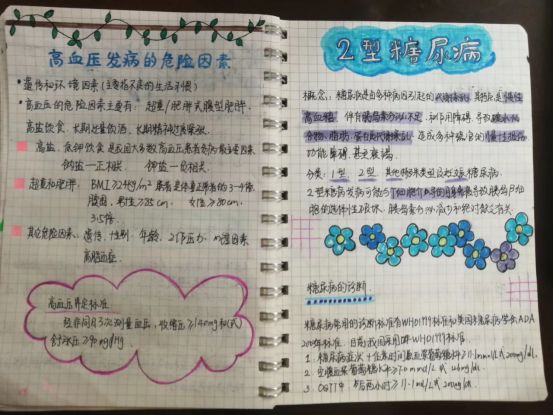 高血压发病的危险因素
• 遗传和环境因素(主要指不良的生活习惯)
• 高血压的危险因素主要有: 超重/肥胖或腹型肥胖,
高盐饮食, 长期过量饮酒, 长期精神过度紧张
高盐, 低钾饮食是我国大多数高血压患者发病主要危险因素
钠盐—正相关, 钾盐—负相关.
超重和肥胖: BMI≥24kg/m² 患
腹围, 男性≥85cm, 女性≥80cm,
3.5倍.
其它危险因素, 遗传, 性别, 年龄, 工作压力, 心理因素
高脂血症.
高血压界定标准
经非同日3次测量血压, 收缩压≥140mmHg和(或)
舒张压≥90mmHg
2型糖尿病
概念: 糖尿病是由多种病因引起的代谢紊乱, 其特点是慢性
高血糖, 伴有胰岛素分泌不足和/或作用障碍, 导致碳水化
合物, 脂肪, 蛋白质代谢紊乱, 造成多种器官的慢性损伤,
功能障碍甚至衰竭.
分类: 1型 2型 其他特殊类型及妊娠糖尿病.
2型糖尿病
糖尿病的诊断
糖尿病常用的诊断标准有WHO1999标准和美国糖尿病学会ADA
标准, 目前我国采用WHO1999标准
1. 糖尿病症状+任意时间血浆葡萄糖水平≥11.1mmol/L或200mg/dL.
2. 空腹血浆葡萄糖水平≥7.0mmol/L或126mg/dL.
3. OGTT中, 后两小时≥11.1 或200mg/dL.